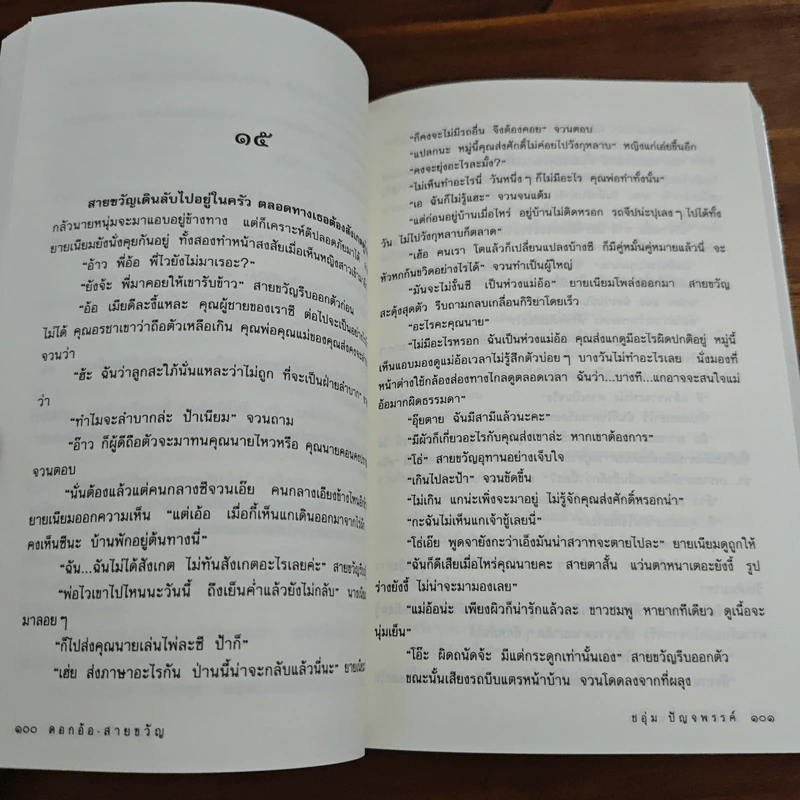 ๑๕
สายขวัญเดินลับไปอยู่ในครัว ตลอดทางเธอต้องสังเกต
กลัวนายหนุ่มจะมาแอบอยู่ข้างทาง แต่ก็เคราะห์ดีปลอดภัยมาได้
ยายเนียมยังนั่งคุยกันอยู่ ทั้งสองทำหน้าสงสัยเมื่อเห็นหญิงสาวเข้ามา
“อ้าว พี่อ้อ พี่ไวยังไม่มาเรอะ?”
“ยังจ้ะ พี่มาคอยให้เขารับข้าว” สายขวัญรีบออกตัวก่อน
“อ้อ เมียดีละงี้แหละ คุณผู้ชายของเราซี ต่อไปจะเป็นอย่าง
ไม่ได้ คุณอรชาเขาว่าถือตัวเหลือเกิน คุณพ่อคุณแม่ของคุณส่งคงจะ
จวนว่า
“ฮ้ะ ฉันว่าลูกสะใภ้นั่นแหละว่าไม่ถูก ที่จะเป็นฝ่ายลำบาก”
ว่า
“ทำไมจะลำบากล่ะ ป้าเนียม” จวนถาม
“อ๊าว ก็ผู้ดีถือตัวจะมาทนคุณนายไหวหรือ คุณนายคอน
จวนตอบ
“นั่นต้องแล้วแต่คนกลางซีจวนเอ๊ย คนกลางเอียงข้างไหน
ยายเนียมออกความเห็น “แต่เอ้อ เมื่อกี้เห็นแกเดินออกมาจาก
คงเห็นซีนะ บ้านพักอยู่ต้นทางนี่”
“ฉัน...ฉันไม่ได้สังเกต ไม่ทันสังเกตอะไรเลยค่ะ” สายขวัญ
“พ่อไวเขาไปไหนนะวันนี้ ถึงเย็นค่ำแล้วยังไม่กลับ”
มาลอยๆ
“ก็ไปส่งคุณนายเล่นไพ่ละซี ป้าก็”
“เฮ่ย ส่งภาษาอะไรกัน ป่านนี้น่าจะกลับแล้วนี่นะ”
๑๐๐ ดอกอ้อ-สายขวัญ
“ก็คงจะไม่มีรถอื่น จึงต้องคอย” จวนตอบ
“แปลกนะ หมู่นี้คุณส่งศักดิ์ไม่ค่อยไปวังกุหลาบ” หญิงแก่เอ่ยขึ้นอีก
“คงจะยุ่งอะไรละมั้ง?”
“ไม่เห็นทำอะไรนี่ วันหนึ่งๆ ก็ไม่มีอะไร คุณพ่อทำทั้งนั้น”
“เอ ฉันก็ไม่รู้แฮะ” จวนจนแต้ม
“แต่ก่อนอยู่บ้านเมื่อไหร่ อยู่บ้านไม่ติดหรอก รถจี๊ปน่ะปุเลงๆ ไปได้ทั้ง
วัน ไม่ไปวังกุหลาบก็ตลาด”
“เฮ้อ คนเรา โตแล้วก็เปลี่ยนแปลงบ้างซี ก็มีคู่หมั้นคู่หมายแล้วนี่ จะ
หัวหกก้นขวิดอย่างไรได้” จวนทำเป็นผู้ใหญ่
“มันจะไม่งั้นซี เป็นห่วงแม่อ้อ” ยายเนียมโพล่งออกมา สายขวัญ
สะดุ้งสุดตัว รีบถามกลบเกลื่อนกิริยาโดยเร็ว
“อะไรคะคุณนาย”
“ไม่มีอะไรหรอก ฉันเป็นห่วงแม่อ้อ คุณส่งแกดูมีอะไรผิดปกติอยู่ หมู่นี้
เห็นแอบมองดูแม่อ้อเวลาไม่รู้สึกตัวบ่อยๆ บางวันไม่ทำอะไรเลย นั่งมองที่
หน้าต่างใช้กล้องส่องทางไกลดูตลอดเวลา ฉันว่า...บางที...แกอาจจะสนใจแม่
อ้อมากผิดธรรมดา”
“อุ๊ยตาย ฉันมีสามีแล้วนะคะ”
“มีผัวก็เกี่ยวอะไรกับคุณส่งเขาล่ะ หากเขาต้องการ”
“โธ่” สายขวัญอุทานอย่างเจ็บใจ
“เกินไปละป้า” จวนขัดขึ้น
“ไม่เกิน แกน่ะเพิ่งจะมาอยู่ ไม่รู้จักคุณส่งศักดิ์หรอกน่า”
“กะฉันไม่เห็นแกเจ้าชู้เลยนี่”
“โธ่เอ๊ย พูดจายังกะว่าเอ็งมันน่าสวาทจะตายไปละ” ยายเนียมดูถูกให้
“ฉันก็ดีเสียเมื่อไหร่คุณนายคะ สายตาสั้น แว่นตาหนาเตอะยังงี้ รูป
ร่างยังงี้ ไม่น่าจะมามองเลย”
“แม่อ้อน่ะ เพียงผิวก็น่ารักแล้วละ ขาวชมพู หายากทีเดียว ดูเนื้อจะ
นุ่มเย็น”
“โอ๊ะ ผิดถนัดจ้ะ มีแต่กระดูกเท่านั้นเอง” สายขวัญรีบออกตัว
ขณะนั้นเสียงรถบีบแตรหน้าบ้าน จวนโดดลงจากที่ผลุง
ชอุ่ม ปัญจพรรค์ ๑๐๑